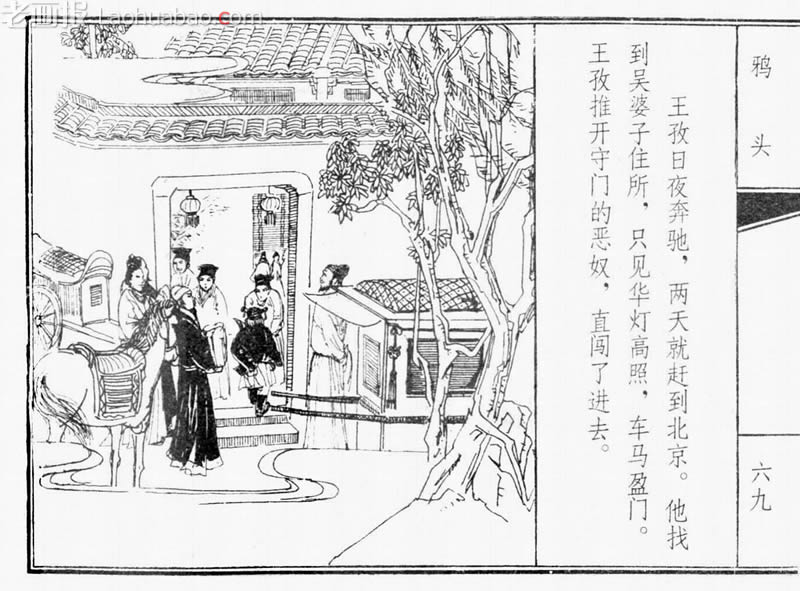 老画报 Laohuabao.com
王孜日夜奔驰，两天就赶到北京。他找
到吴婆子住所，只见华灯高照，车马盈门。
王孜推开守门的恶奴，直闯了进去。
鸦头
六九